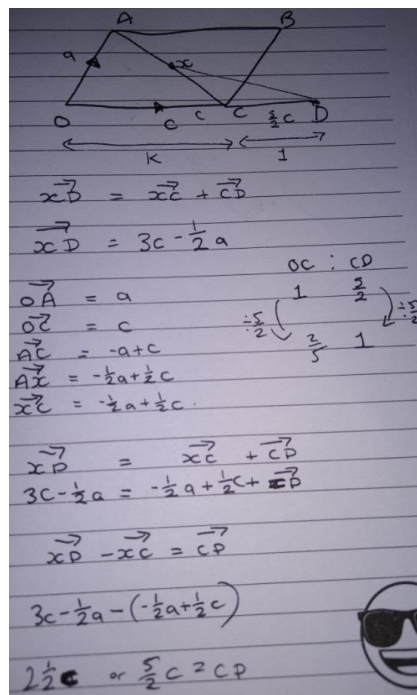 A B
a x
O c C 5/2 c D
K 1
→XD = →XC + →CD
→XD = 3c - 1/2 a
OC : CD
1 5/2
÷5/2 ÷5/2
2/5 1
→OA = a
→OC = c
→AC = -a+c
→AX = -1/2 a + 1/2 c
→XC = -1/2 a + 1/2 c.
→XD = →XC + →CD
3c - 1/2 a = -1/2 a + 1/2 c + →CD
→XD - →XC = →CD
3c - 1/2 a - (-1/2 a + 1/2 c)
2 1/2 c or 5/2 c = CD